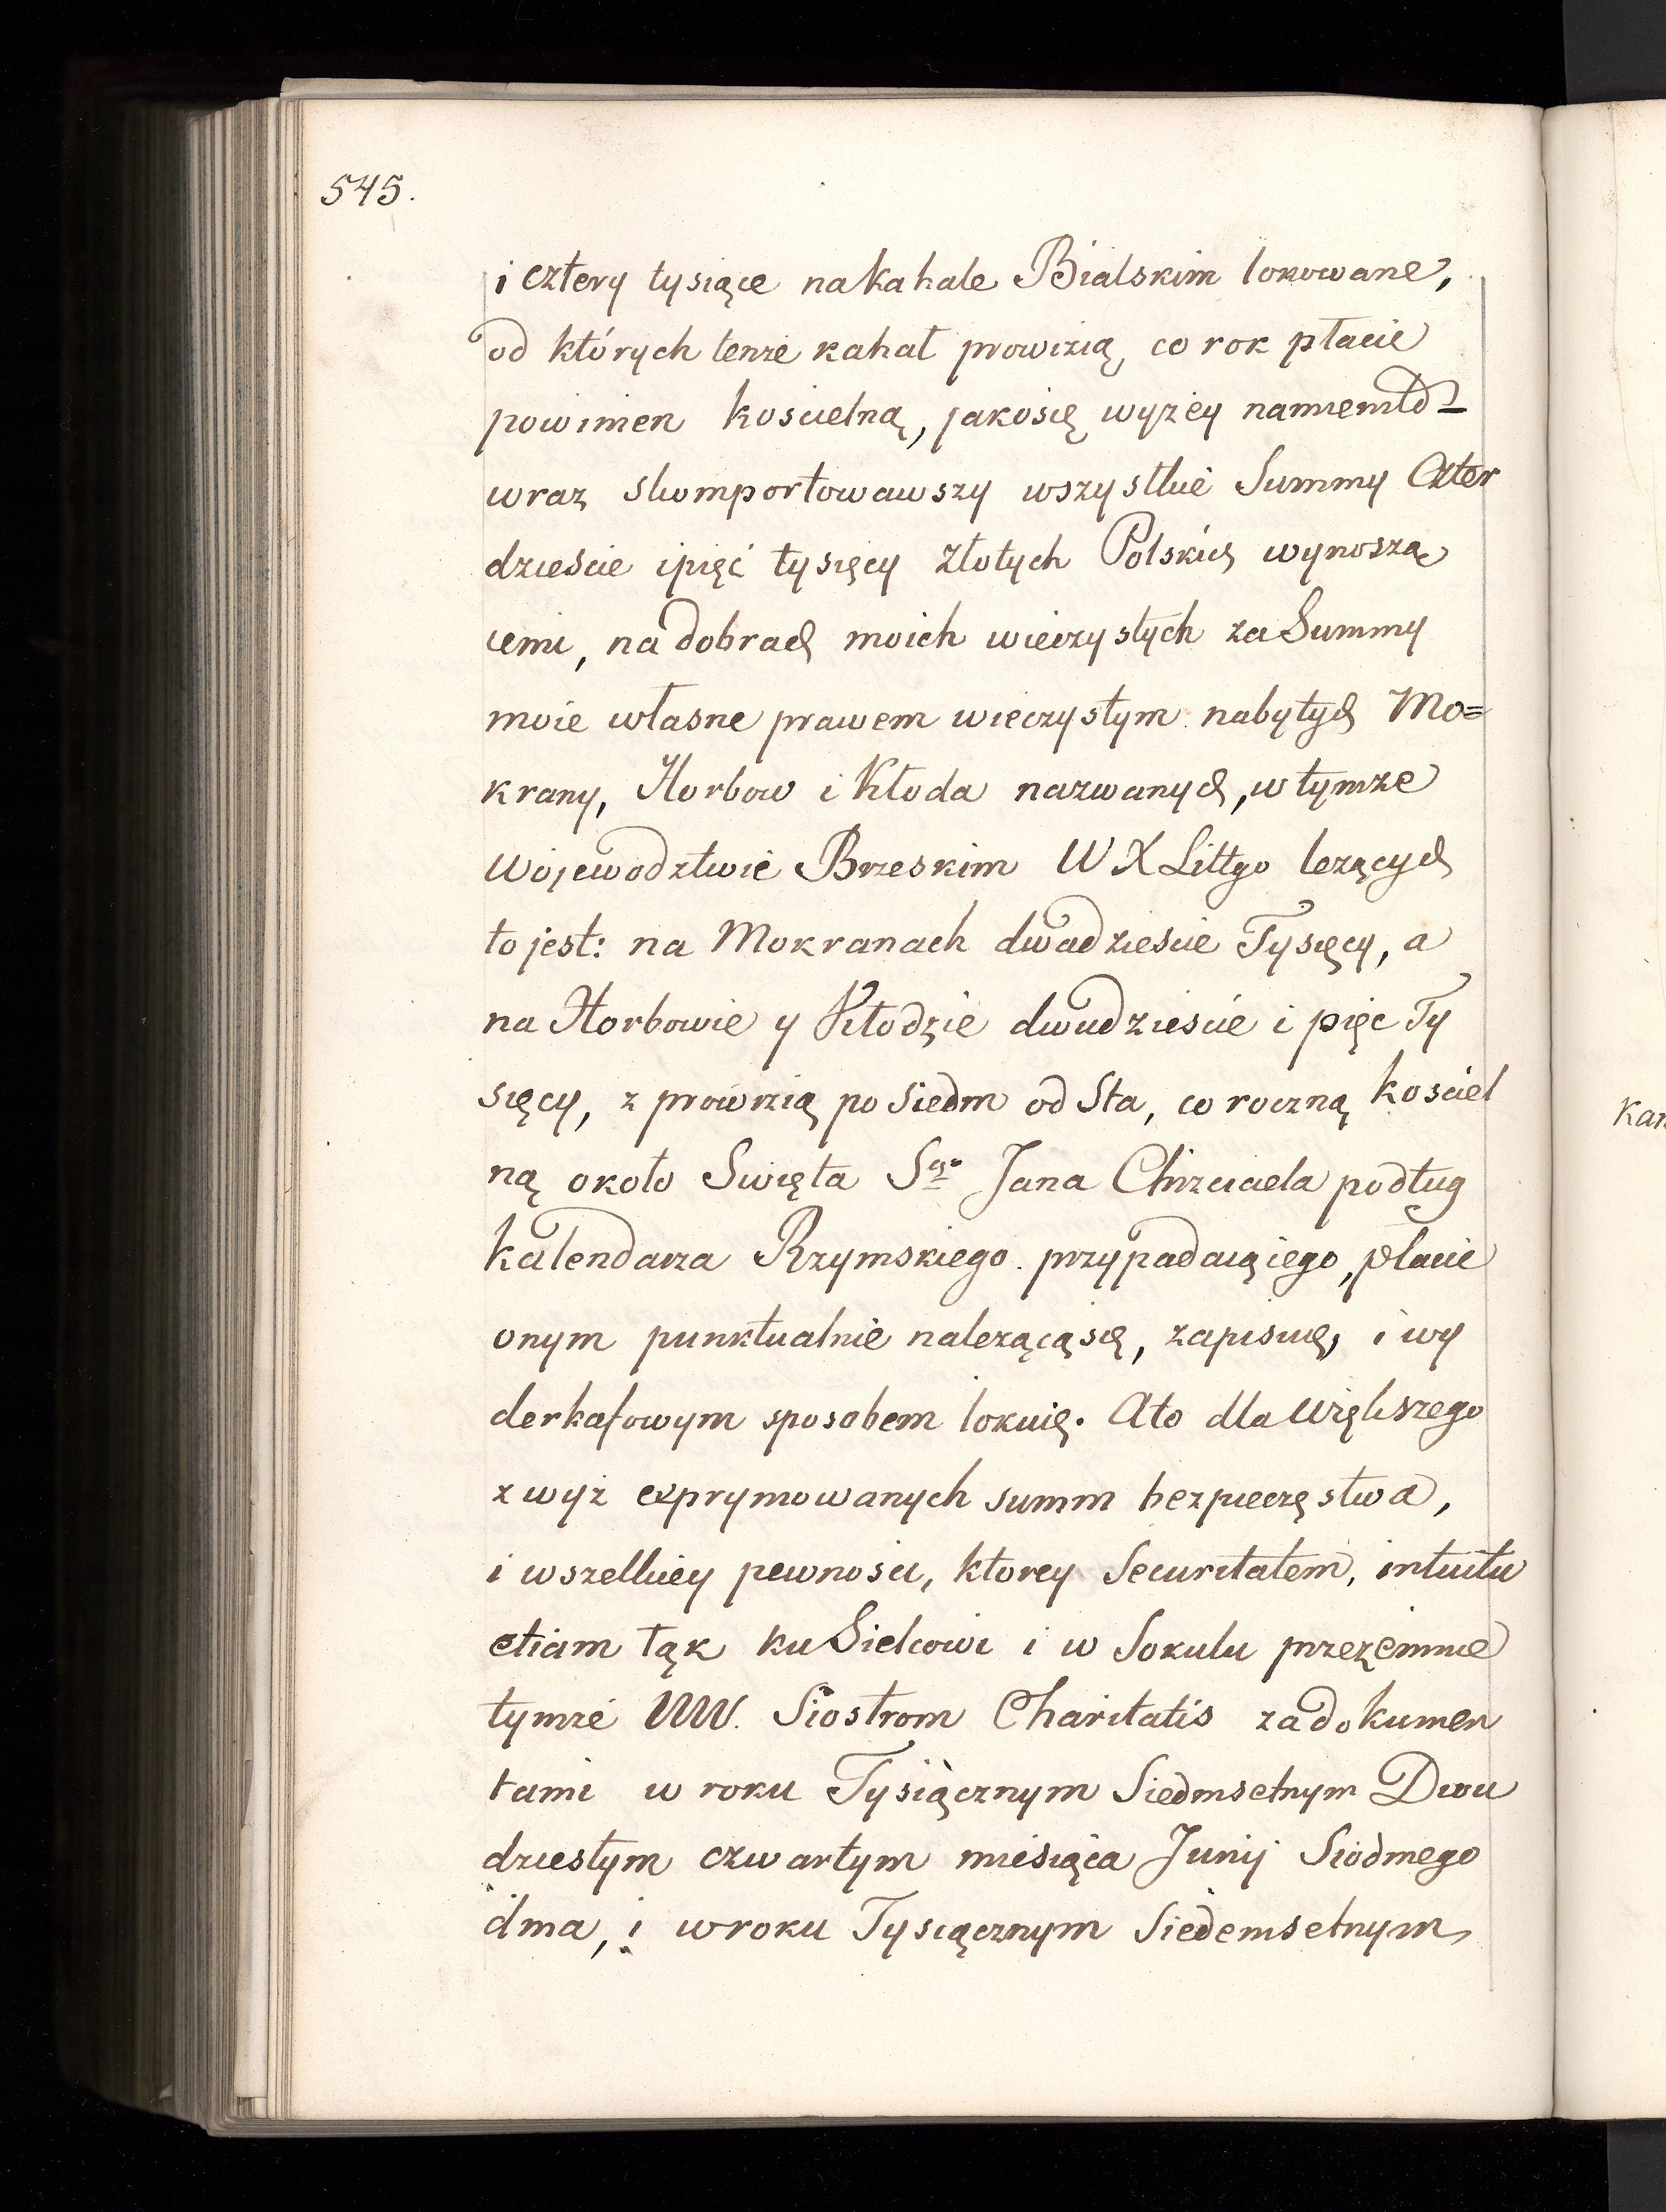 545.
i cztery tysiące na kahale Bialskim lokowane,
od których tenże kahał prowizią co rok płacie
powinien koscielną, jakosię wyżey
wraz skomportowawszy wszystkie Summy Czter
dziescie i pięć tysięcy Złotych Polskich wynoszą
cemi, na dobrach moich wieczystych za Summy
moie własne prawem wieczystym nabytych Mo=
krany, Horbow i Kłoda nazwanych, w tymze
Wojewodztwie Brzeskim W X Littgo lezących
to jest: na Mokranach dwadziescie Tysięcy, a
na Horbowie y Kłodzie dwudziescie i pięc Ty
sięcy, z prowizią po Siedm od Sta, co roczną kosciel
ną około Swięta Sgo Jana Chrzciciela podług
kalendarza Rzymskiego przypadaiąiego, płacie
onym punktualnie należącą się, zapisuię, i wy
derkafowym sposobem lokuię. Ato dla większego
zwyż exprymowanych summ bezpieczęstwa,
i wszelkiey pewnosci, ktorey Securitatem, intuitu
etiam tąk ku Sielcowi i w Sokulu przezemnie
tymże WW. Siostrom Charitatis za dokumen
tami w roku Tysiącznym Siedmsetnym Dwu
dziestym czwartym miesiąca Junij Siodmego
dnia, i w roku Tysiącznym Siedemsetnym
kan